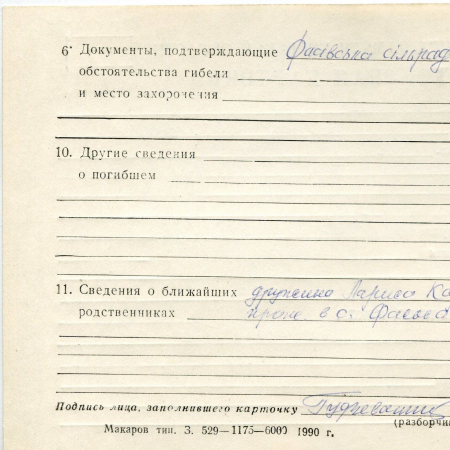 6. Документы, подтверждающие Фасівська сільрад
обстоятельства гибели
и место захоронения
10. Другие сведения
о погибшем
11. Сведения о ближайших дружина Лариса Ка
родственниках прож. в с. Фасова
Подпись лица, заполнившего карточку
(разборчи
Макаров тип. З. 529—1175—6000 1990 г.